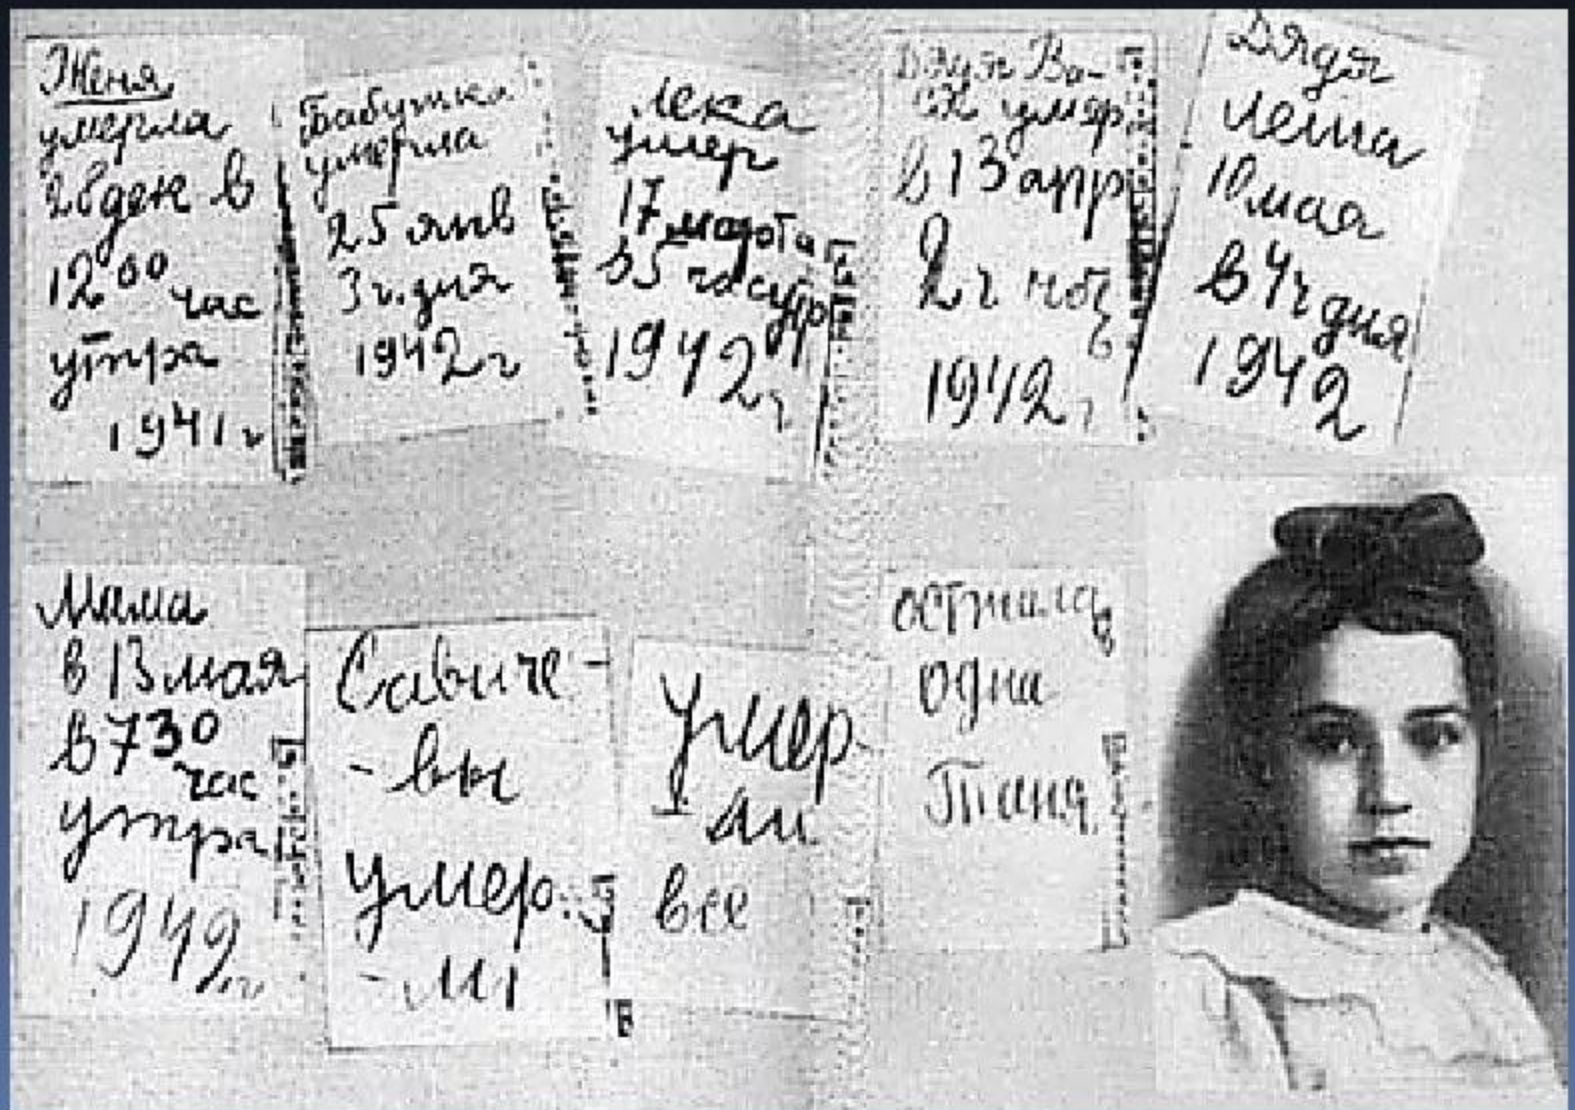 Женя
умерла
28 дек в
12 00 час
утра
1941 г
Бабушка
умерла
25 янв
3 ч. дня
1942 г
Лека
умер
17 марта
в 5 час утр
1942 г
Дядя Ва-
ся умер
в 13 апр
2 ч ноч
ь
1942 г
Дядя
Леша
10 мая
в 4 ч дня
1942
Мама
в 13 мая
в 7 30
час
утра
1942 г
Савиче-
-вы
умер
-ли
Умер
ли
все
осталась
одна
Таня